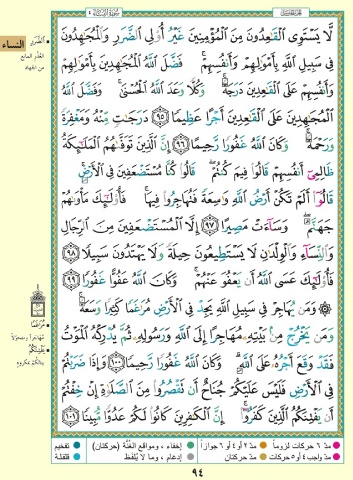 سورة النساء ٤
الجزء الخامس
النساء
لَّا يَسْتَوِى الْقَٰعِدُونَ مِنَ الْمُؤْمِنِينَ غَيْرُ أُو۟لِى الضَّرَرِ وَالْمُجَٰهِدُونَ
فِى سَبِيلِ اللَّهِ بِأَمْوَٰلِهِمْ وَأَنفُسِهِمْ ۚ فَضَّلَ اللَّهُ الْمُجَٰهِدِينَ بِأَمْوَٰلِهِمْ
وَأَنفُسِهِمْ عَلَى الْقَٰعِدِينَ دَرَجَةً ۚ وَكُلًّا وَعَدَ اللَّهُ الْحُسْنَىٰ ۚ وَفَضَّلَ اللَّهُ
الْمُجَٰهِدِينَ عَلَى الْقَٰعِدِينَ أَجْرًا عَظِيمًا ٩٥ دَرَجَٰتٍ مِّنْهُ وَمَغْفِرَةً
وَرَحْمَةً ۚ وَكَانَ اللَّهُ غَفُورًا رَّحِيمًا ٩٦ إِنَّ الَّذِينَ تَوَفَّىٰهُمُ الْمَلَٰٓئِكَةُ
ظَالِمِىٓ أَنفُسِهِمْ قَالُوا۟ فِيمَ كُنتُمْ ۖ قَالُوا۟ كُنَّا مُسْتَضْعَفِينَ فِى الْأَرْضِ ۚ
قَالُوٓا۟ أَلَمْ تَكُنْ أَرْضُ اللَّهِ وَٰسِعَةً فَتُهَاجِرُوا۟ فِيهَا ۚ فَأُو۟لَٰٓئِكَ مَأْوَىٰهُمْ
جَهَنَّمُ ۖ وَسَآءَتْ مَصِيرًا ٩٧ إِلَّا الْمُسْتَضْعَفِينَ مِنَ الرِّجَالِ
وَالنِّسَآءِ وَالْوِلْدَٰنِ لَا يَسْتَطِيعُونَ حِيلَةً وَلَا يَهْتَدُونَ سَبِيلًا ٩٨
فَأُو۟لَٰٓئِكَ عَسَى اللَّهُ أَن يَعْفُوَ عَنْهُمْ ۚ وَكَانَ اللَّهُ عَفُوًّا غَفُورًا ٩٩
۞ وَمَن يُهَاجِرْ فِى سَبِيلِ اللَّهِ يَجِدْ فِى الْأَرْضِ مُرَٰغَمًا كَثِيرًا وَسَعَةً ۚ
وَمَن يَخْرُجْ مِنۢ بَيْتِهِۦ مُهَاجِرًا إِلَى اللَّهِ وَرَسُولِهِۦ ثُمَّ يُدْرِكْهُ الْمَوْتُ
فَقَدْ وَقَعَ أَجْرُهُۥ عَلَى اللَّهِ ۗ وَكَانَ اللَّهُ غَفُورًا رَّحِيمًا ١٠٠ وَإِذَا ضَرَبْتُمْ
فِى الْأَرْضِ فَلَيْسَ عَلَيْكُمْ جُنَاحٌ أَن تَقْصُرُوا۟ مِنَ الصَّلَوٰةِ إِنْ خِفْتُمْ
أَن يَفْتِنَكُمُ الَّذِينَ كَفَرُوٓا۟ ۚ إِنَّ الْكَٰفِرِينَ كَانُوا۟ لَكُمْ عَدُوًّا مُّبِينًا ١٠١
الضَّرَرِ
العذر المانع
من الجهاد
مُرَٰغَمًا
يَفْتِنَكُمُ
ينالكم بمكروه
مدّ ٦ حركات لزوماً مدّ ٢ أو ٤ أو ٦ جوازاً إخفاء، ومواقع الغُنَّة (حركتان) تفخيم
مدّ واجب ٤ أو ٥ حركات مدّ حركتان إدغام، وما لا يُلفَظ قلقلة
٩٤